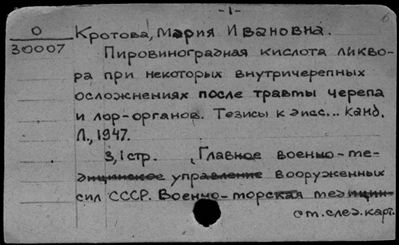 -1- 6
О Кротова, Мария Ивановна.
30007 Пировиноградная кислота ликво-
ра при некоторых внутричерепных
осложнениях после травмы черепа
и лор-органов. Тезисы к дисс... канд.
Л., 1947.
3,1 стр. (Главное военно-ме-
дицинское управление Вооруженных
сил СССР. Военно-морская медицин-
см. след. карт.